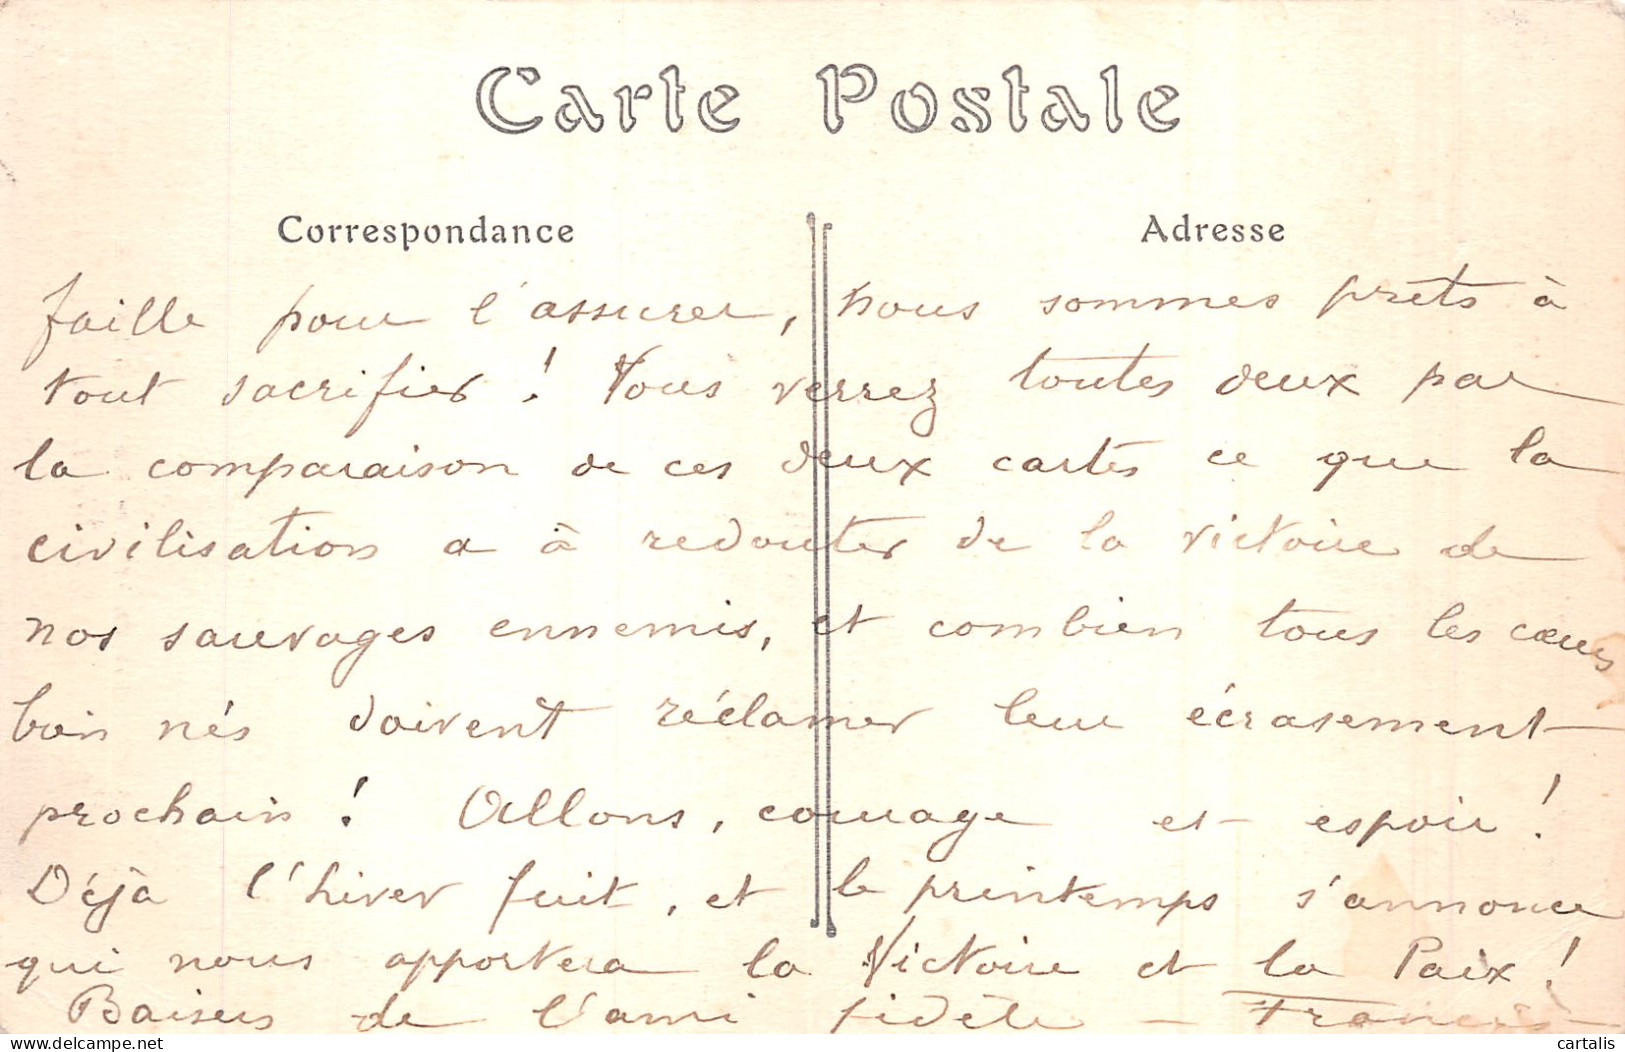 Carte Postale
Correspondance
Adresse
faille pour l'assurer, nous sommes prêts à
tout sacrifier ! Vous verrez toutes deux par
la comparaison de ces deux cartes ce que la
civilisation a à redouter de la victoire de
nos sauvages ennemis, et combien tous les cœurs
bien nés doivent réclamer leur écrasement
prochain ! Allons, courage et espoir !
Déjà l'hiver fuit, et le printemps s'annonce
qui nous apportera la Victoire et la Paix !
Baisers de l'ami fidèle - Francis
cartalis